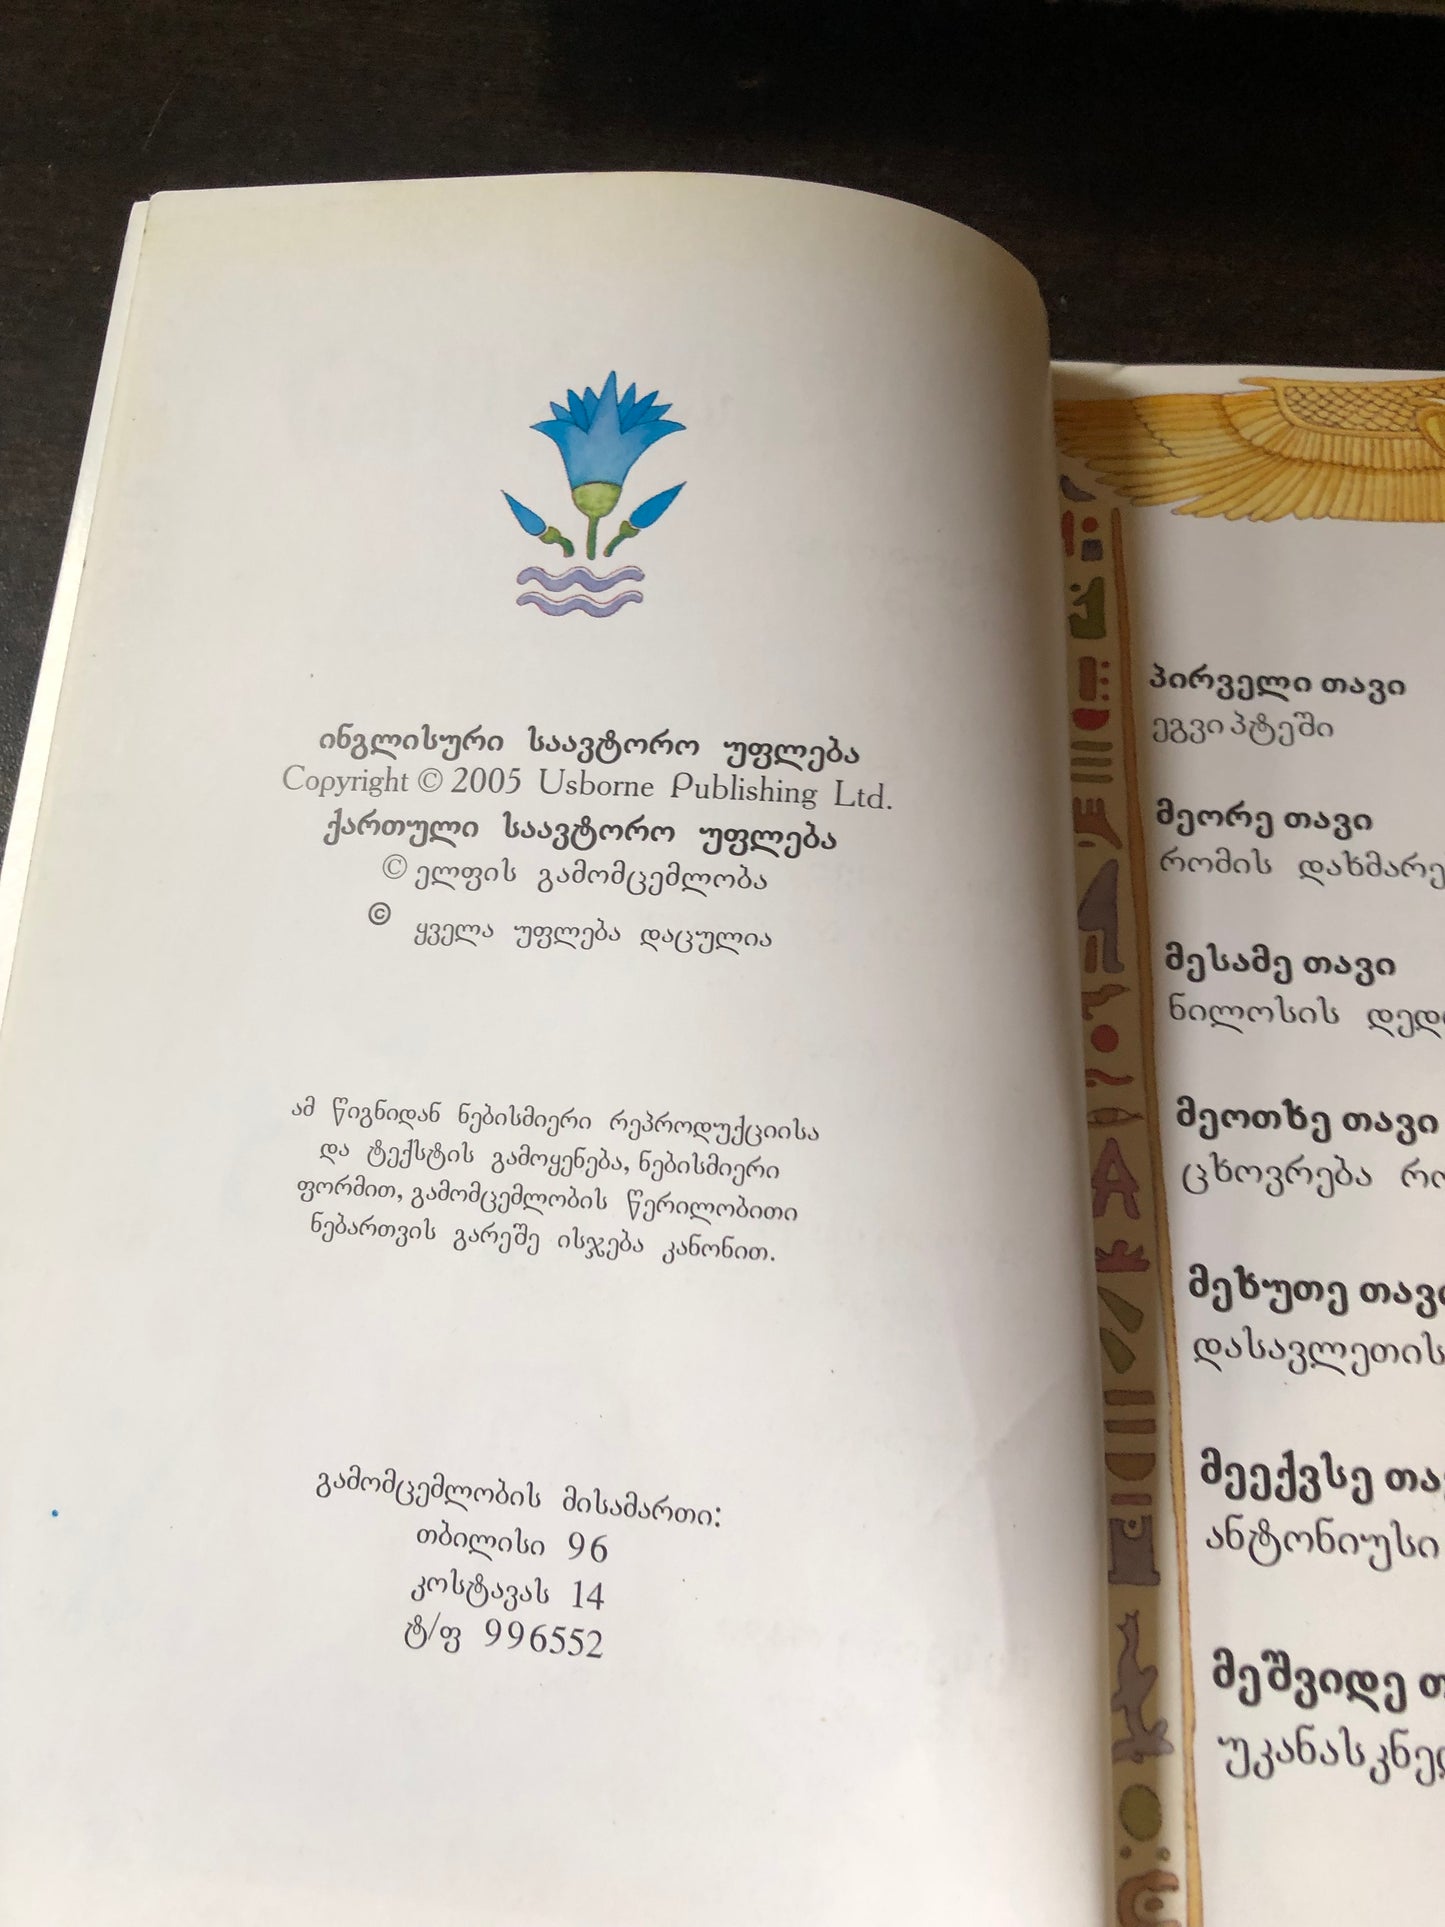 ინგლისური საავტორო უფლება
Copyright © 2005 Usborne Publishing Ltd.
ქართული საავტორო უფლება
© ელფის გამომცემლობა
© ყველა უფლება დაცულია
ამ წიგნიდან ნებისმიერი რეპროდუქციისა
და ტექსტის გამოყენება, ნებისმიერი
ფორმით, გამომცემლობის წერილობითი
ნებართვის გარეშე ისჯება კანონით.
გამომცემლობის მისამართი:
თბილისი 96
კოსტავას 14
ტ/ფ 996552
პირველი თავი
ეგვიპტეში
მეორე თავი
რომის
მესამე თავი
ნილოსის
მეოთხე თავი
ცხოვრება
მეხუთე თავი
დასავლეთის
მეექვსე
ანტონიუსი
მეშვიდე